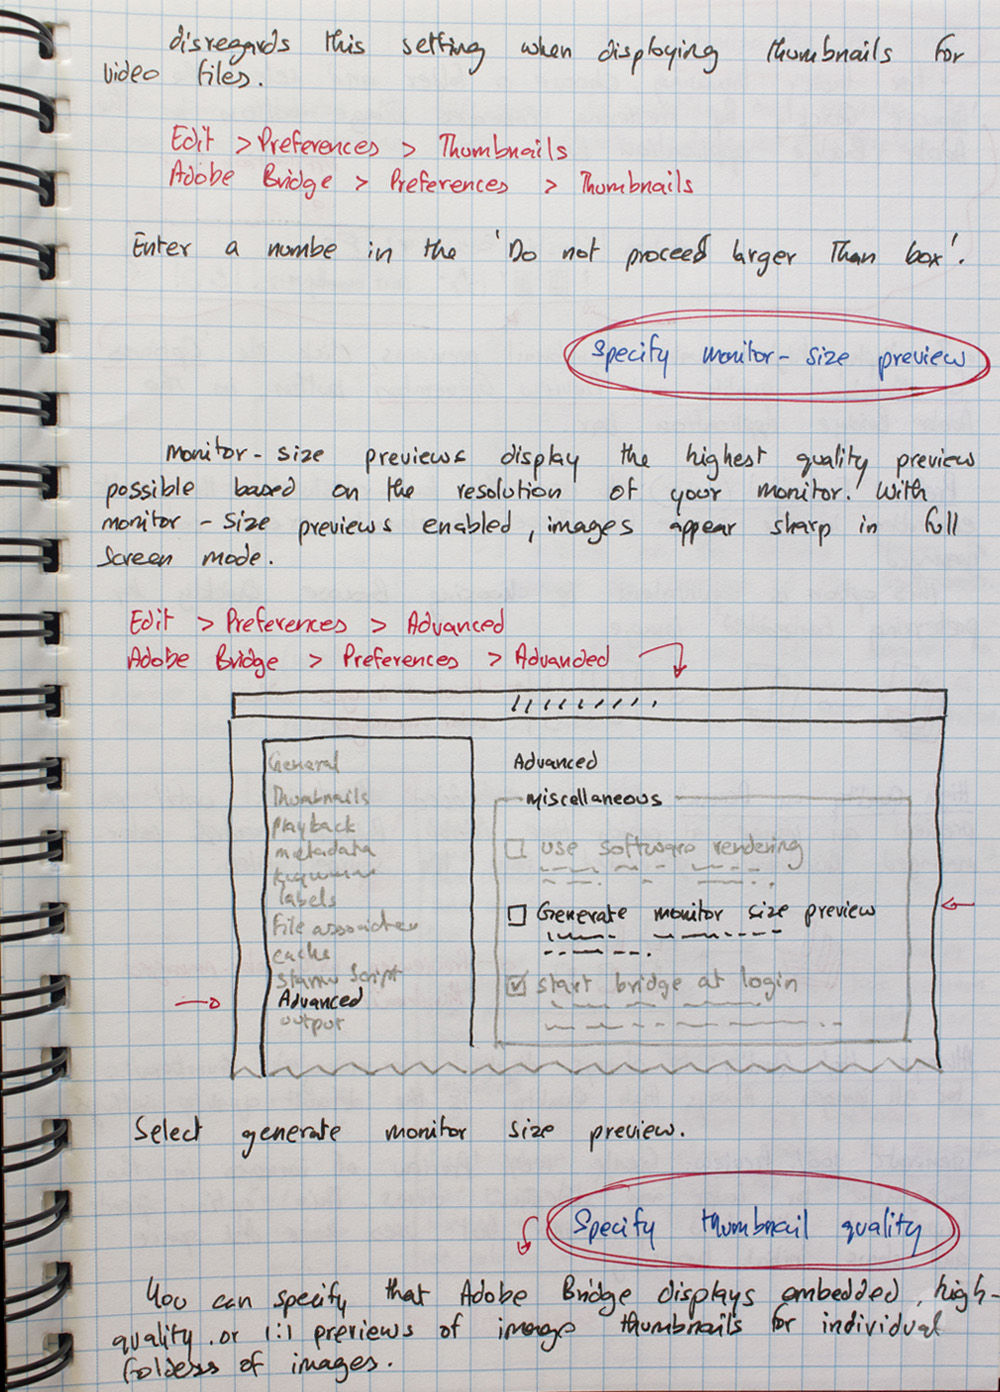 disregards this setting when displaying thumbnails for
video files.
Edit > Preferences > Thumbnails
Adobe Bridge > Preferences > Thumbnails
Enter a numbe in the 'Do not proceed larger Than box'.
Specify monitor-size preview
monitor-size previews display the highest quality preview
possible based on the resolution of your monitor. With
monitor-size previews enabled, images appear sharp in full
screen mode.
Edit > Preferences > Advanced
Adobe Bridge > Preferences > Advanded
General
Thumbnails
playback
metadata
labels
File
cache
Script
Advanced
output
Advanced
miscellaneous
use software rendering
Generate monitor size preview
start bridge at login
Select generate monitor size preview.
Specify thumbnail quality
You can specify that Adobe Bridge displays embedded, high-
quality, or 1:1 previews of image thumbnails for individual
folders of images.